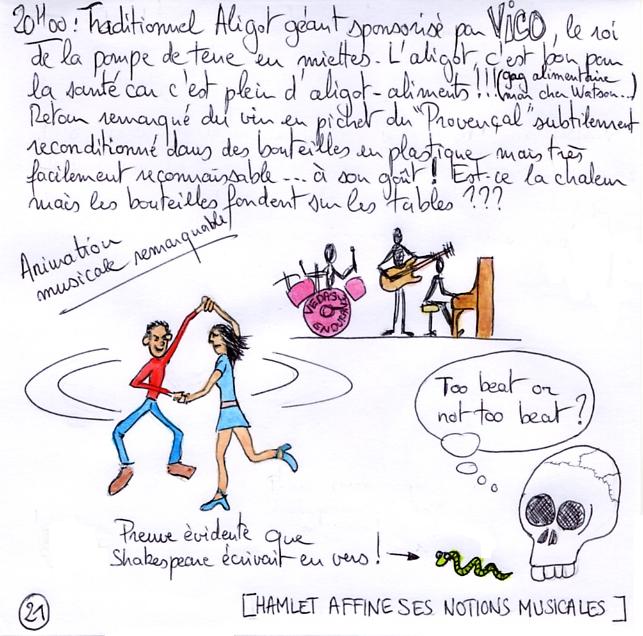 20H00 : Traditionnel Aligot géant sponsorisé par VICO, le roi
de la pompe de terre en miettes. L'aligot c'est bon pour
la santé car c'est plein d'aligot-aliments !!! (gag alimentaire
mon cher Watson...)
Retour remarqué du vin en pichet du "Provençal" subtilement
reconditionné dans des bouteilles en plastique mais très
facilement reconnaissable ... à son goût ! Est-ce la chaleur
mais les bouteilles fondent sur les tables ???
Animation
musicale remarquable
VEDAS
ENDURANCE
Too beat or
not too beat ?
Preuve évidente que
Shakespeare écrivait en vers !
[HAMLET AFFINE SES NOTIONS MUSICALES]
21